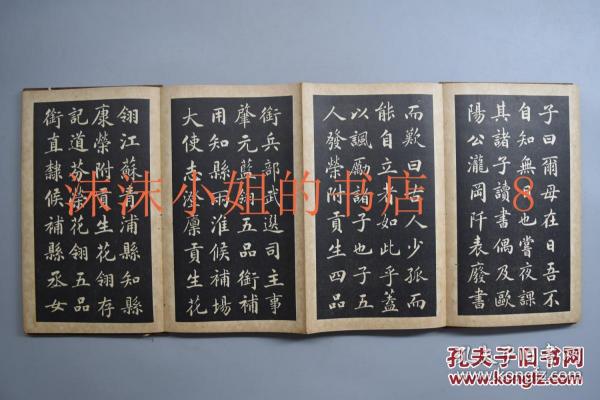 子曰爾母在日吾不
自知無母也嘗夜課
其諸子讀書偶及歐
陽公瀧岡阡表廢書
而歎曰古人少孤而
能自立者如此乎蓋
以諷勵諸子也子五
人發榮附貢生四品
銜兵部武選司主事
肇元藍翎五品銜補
用知縣兩淮候補場
大使志澄廩貢生花
翎江蘇青浦縣知縣
康榮附貢生花翎存
記道芬榮花翎五品
銜直隸候補縣丞女
沫沫小姐的书店 8
孔夫子旧书网
www.kongfz.com